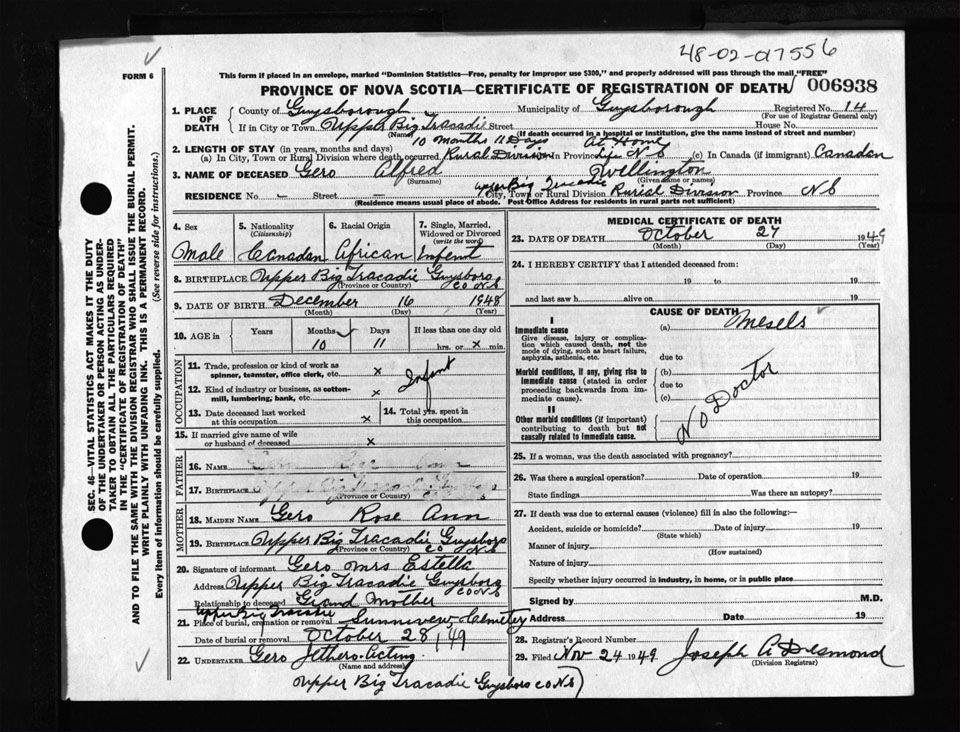 48-02-017556
FORM 6
This form if placed in an envelope, marked "Dominion Statistics—Free, penalty for improper use $300," and properly addressed will pass through the mail "FREE"
PROVINCE OF NOVA SCOTIA—CERTIFICATE OF REGISTRATION OF DEATH 006938
1. PLACE OF DEATH County of Guysborough Municipality of Guysborough Registered No. 14
(For use of Registrar General only)
If in City or Town Upper Big Tracadie Street House No.
(Name) (If death occurred in a hospital or institution, give the name instead of street and number)
10 months 11 Days At Home
2. LENGTH OF STAY (in years, months and days)
(a) In City, Town or Rural Division where death occurred Rural Division In Province Life N S (c) In Canada (if immigrant) Canadan
3. NAME OF DECEASED Gero Alfred Wellington
(Surname) (Given name or names)
RESIDENCE No. - Street City, Town or Rural Division Upper Big Tracadie Rurial Division Province N S
(Residence means usual place of abode. Post Office Address for residents in rural parts not sufficient)
4. Sex 5. Nationality (Citizenship) 6. Racial Origin 7. Single, Married, Widowed or Divorced (write the word)
Male Canadan African Infent
8. BIRTHPLACE Upper Big Tracadie Guysboro Co N S
(Province or Country)
9. DATE OF BIRTH December 16 1948
(Month) (Day) (Year)
10. AGE in Years Months Days If less than one day old
10 11 hrs. or x min.
OCCUPATION
11. Trade, profession or kind of work as spinner, teamster, office clerk, etc. x
Infant
12. Kind of industry or business, as cotton-mill, lumbering, bank, etc. x
13. Date deceased last worked at this occupation x 14. Total yrs. spent in this occupation
15. If married give name of wife or husband of deceased x
FATHER
16. NAME
17. BIRTHPLACE
(Province or Country)
MOTHER
18. MAIDEN NAME Gero Rose Ann
19. BIRTHPLACE Upper Big Tracadie Guysboro Co N S
(Province or Country)
20. Signature of informant Gero Mrs Estella
Address Upper Big Tracadie Guysboro Co N S
Relationship to deceased Grand Mother
Upper Big Tracadie
21. Place of burial, cremation or removal Sunnivew Cemetery
Date of burial or removal October 28/49
22. UNDERTAKER Gero Jethero. Acting
(Name and address)
Upper Big Tracadie Guysboro Co N S)
MEDICAL CERTIFICATE OF DEATH
23. DATE OF DEATH October 27 1949
(Month) (Day) (Year)
24. I HEREBY CERTIFY that I attended deceased from:
19 to 19
and last saw h alive on 19
CAUSE OF DEATH
I
Immediate cause (a) Mesels
Give disease, injury or complication which caused death, not the mode of dying, such as heart failure, asphyxia, asthenia, etc.
due to
Morbid conditions, if any, giving rise to immediate cause (stated in order proceeding backwards from immediate cause).
(b)
due to
(c)
No Doctor
II
Other morbid conditions (if important) contributing to death but not causally related to immediate cause.
25. If a woman, was the death associated with pregnancy?
26. Was there a surgical operation? Date of operation 19
State findings Was there an autopsy?
27. If death was due to external causes (violence) fill in also the following:—
Accident, suicide or homicide? Date of injury 19
(State which)
Manner of injury
(How sustained)
Nature of injury
Specify whether injury occurred in industry, in home, or in public place
Signed by M.D.
Address Date 19
28. Registrar's Record Number
29. Filed Nov 24 1949 Joseph A Desmond
(Division Registrar)
SEC. 46—VITAL STATISTICS ACT MAKES IT THE DUTY
OF THE UNDERTAKER OR PERSON ACTING AS UNDERTAKER TO OBTAIN ALL THE PARTICULARS REQUIRED
IN THE "CERTIFICATE OF REGISTRATION OF DEATH"
AND TO FILE THE SAME WITH THE DIVISION REGISTRAR WHO SHALL ISSUE THE BURIAL PERMIT.
WRITE PLAINLY WITH UNFADING INK. THIS IS A PERMANENT RECORD.
Every item of information should be carefully supplied. (See reverse side for instructions.)